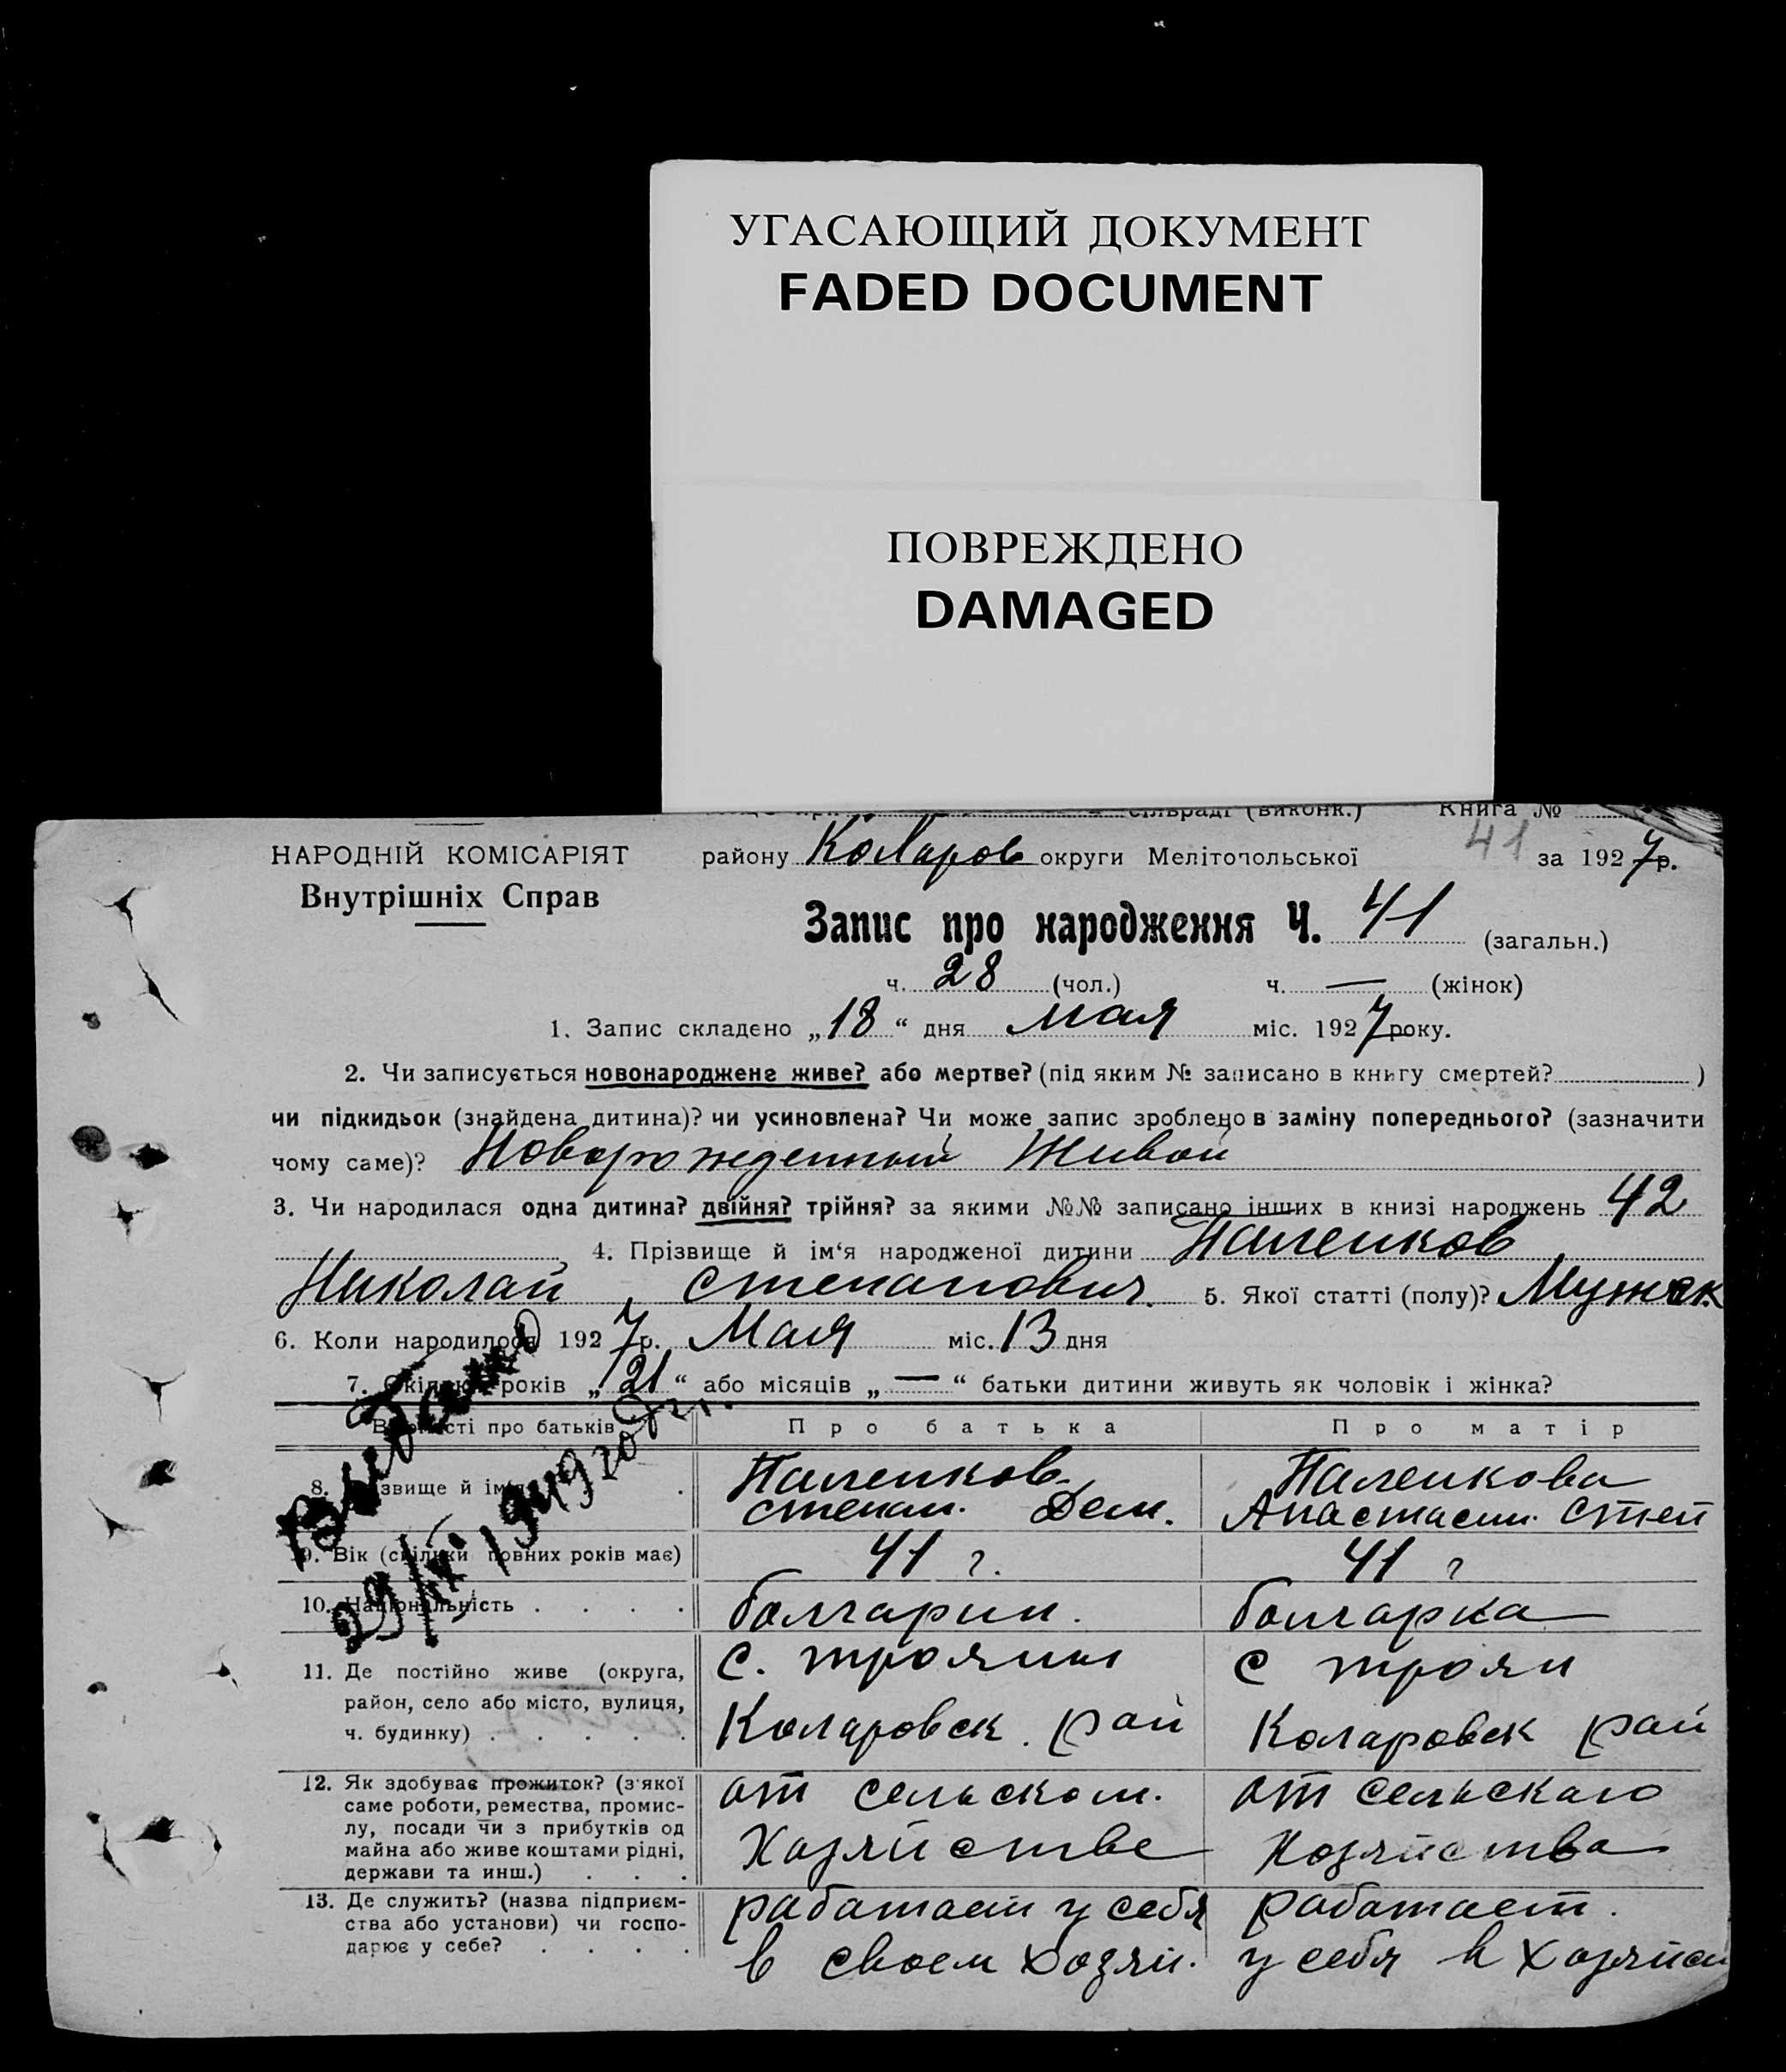 УГАСАЮЩИЙ ДОКУМЕНТ
FADED DOCUMENT
ПОВРЕЖДЕНО
DAMAGED
сільраді (виконк.) Книга №
НАРОДНІЙ КОМІСАРІЯТ
Внутрішніх Справ
району Коларов округи Мелітопольської 41 за 1927 р.
Запис про народження Ч. 41 (загальн.)
ч. 28 (чол.) ч. — (жінок)
1. Запис складено „18“ дня мая міс. 1927 року.
2. Чи записується новонароджене живе? або мертве? (під яким № записано в книгу смертей? )
чи підкидьок (знайдена дитина)? чи усиновлена? Чи може запис зроблено в заміну попереднього? (зазначити
чому саме)? Новорожденный Живой
3. Чи народилася одна дитина? двійня? трійня? за якими №№ записано інших в книзі народжень 42
4. Прізвище й ім‘я народженої дитини Паленков
Николай Степанович. 5. Якої статті (полу)? Мужск
6. Коли народилося 1927 р. Мая міс. 13 дня
7. Скільки років „21“ або місяців „—“ батьки дитини живуть як чоловік і жінка?
Відомості про батьків Про батька Про матір
8. Прізвище й ім‘я Паленков Степан. Дем. Паленкова Анастасии. Степ
9. Вік (скільки повних років має) 41 г. 41 г
10. Національність . . . . болгарин. болгарка
11. Де постійно живе (округа,
район, село або місто, вулиця,
ч. будинку) . . . . .
с. трояны
Коларовск. рай
с троян
Коларовск рай
12. Як здобуває прожиток? (з якої
саме роботи, ремества, промис-
лу, посади чи з прибутків од
майна або живе коштами рідні,
держави та инш.) . . .
от сельском.
Хозяйстве
от сельскаго
хозяйства
13. Де служить? (назва підприєм-
ства або установи) чи госпо-
дарює у себе? . . . .
работает у себя
в своем хозяй.
работает.
у себя в хозяйст